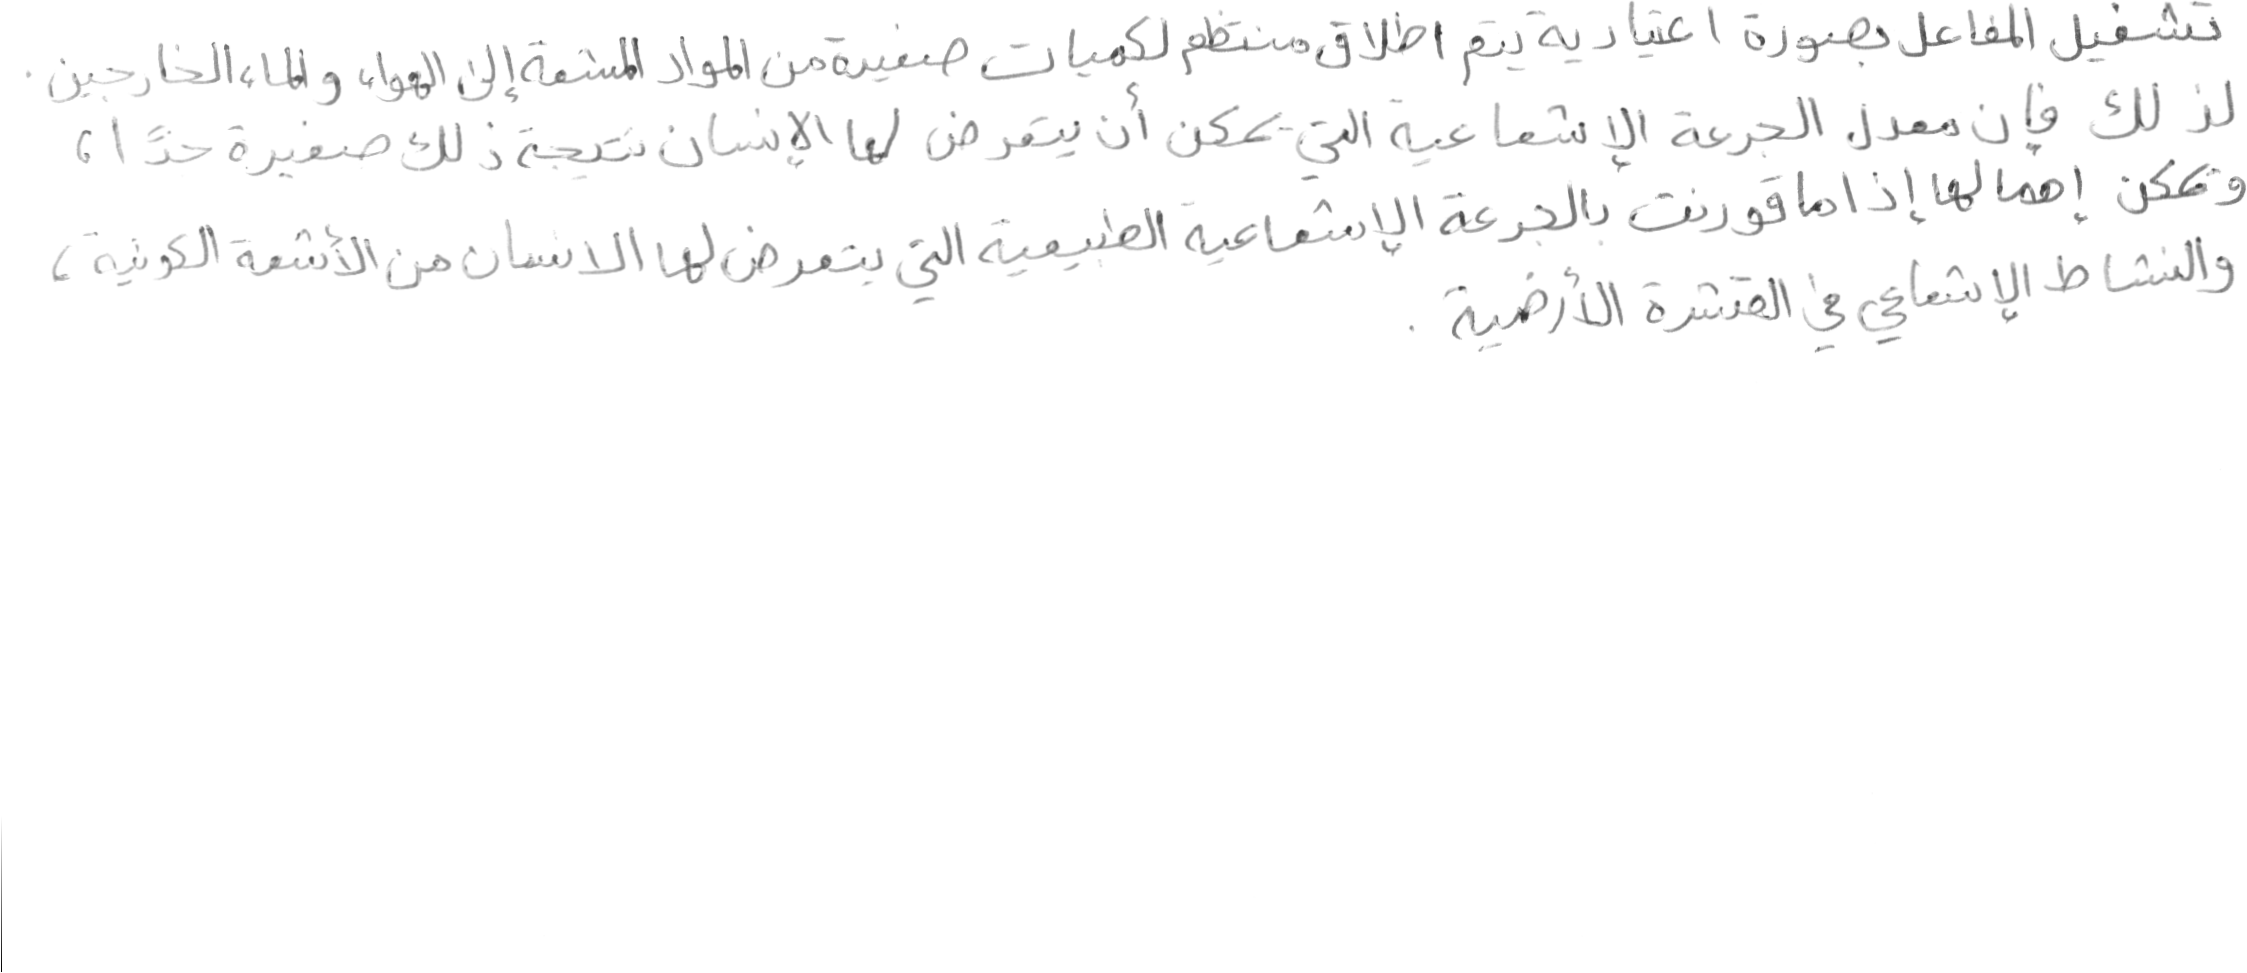 تشغيل المفاعل بصورة اعتيادية يتم اطلاق منتظم لكميات صغيرة من المواد المشعة إلى الهواء والماء الخارجين .
لذلك فإن معدل الجرعة الإشعاعية التي يمكن أن يتعرض لها الإنسان نتيجة ذلك صغيرة جدًا ،
ويمكن إهمالها إذا ما قورنت بالجرعة الإشعاعية الطبيعية التي يتعرض لها الانسان من الأشعة الكونية ،
والنشاط الإشعاعي في القشرة الأرضية .